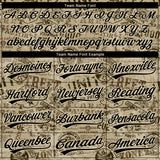 Team Name Font
ABCDEFGHIJKLMN
OPQRSTUVWXYZ
abcdefghijklmnopqrstuvwxyz
Team Name Font Example
Desmoines Fortwayne Knoxville
Hartford Newjersey Reading
Vancouver Burbank Pensacola
Queenbee Canada America